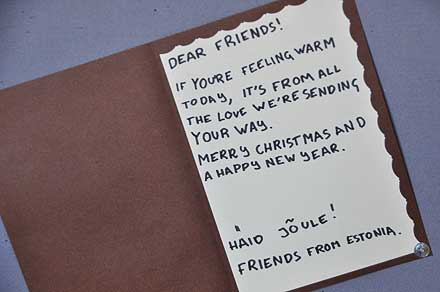 DEAR FRIENDS!
IF YOU'RE FEELING WARM
TODAY, IT'S FROM ALL
THE LOVE WE'RE SENDING
YOUR WAY.
MERRY CHRISTMAS AND
A HAPPY NEW YEAR.
HÄID JÕULE!
FRIENDS FROM ESTONIA.